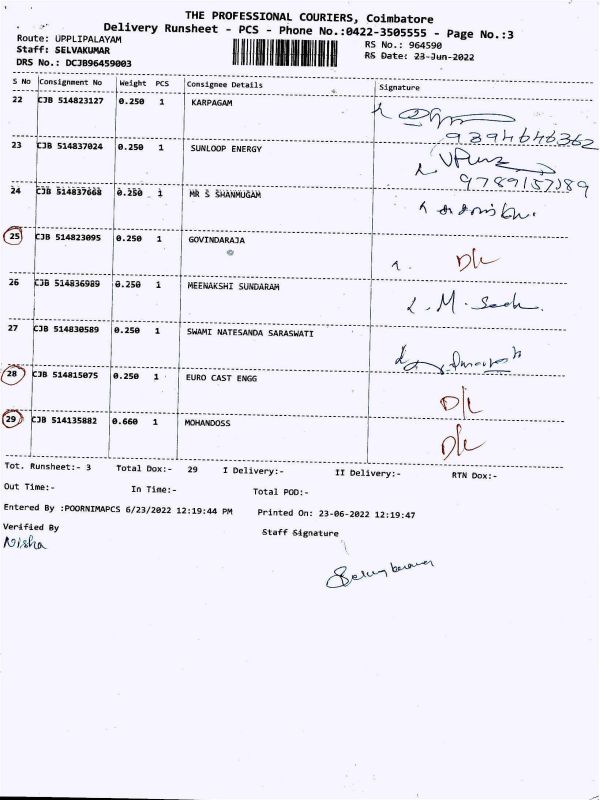 THE PROFESSIONAL COURIERS, Coimbatore
Delivery Runsheet - PCS - Phone No.:0422-3505555 - Page No.:3
Route: UPPLIPALAYAM
RS No.: 964590
Staff: SELVAKUMAR
RS Date: 23-Jun-2022
DRS No.: DCJB96459003
S No Consignment No Weight PCS Consignee Details Signature
22 CJB 514823127 0.250 1 KARPAGAM
9394646362
23 CJB 514837024 0.250 1 SUNLOOP ENERGY
9789157189
24 CJB 514837668 0.250 1 MR S SHANMUGAM
25 CJB 514823095 0.250 1 GOVINDARAJA D/L
26 CJB 514836989 0.250 1 MEENAKSHI SUNDARAM
27 CJB 514830589 0.250 1 SWAMI NATESANDA SARASWATI
28 CJB 514815075 0.250 1 EURO CAST ENGG D/L
29 CJB 514135882 0.660 1 MOHANDOSS D/L
Tot. Runsheet:- 3 Total Dox:- 29 I Delivery:- II Delivery:- RTN Dox:-
Out Time:- In Time:- Total POD:-
Entered By :POORNIMAPCS 6/23/2022 12:19:44 PM Printed On: 23-06-2022 12:19:47
Verified By Staff Signature
Nisha